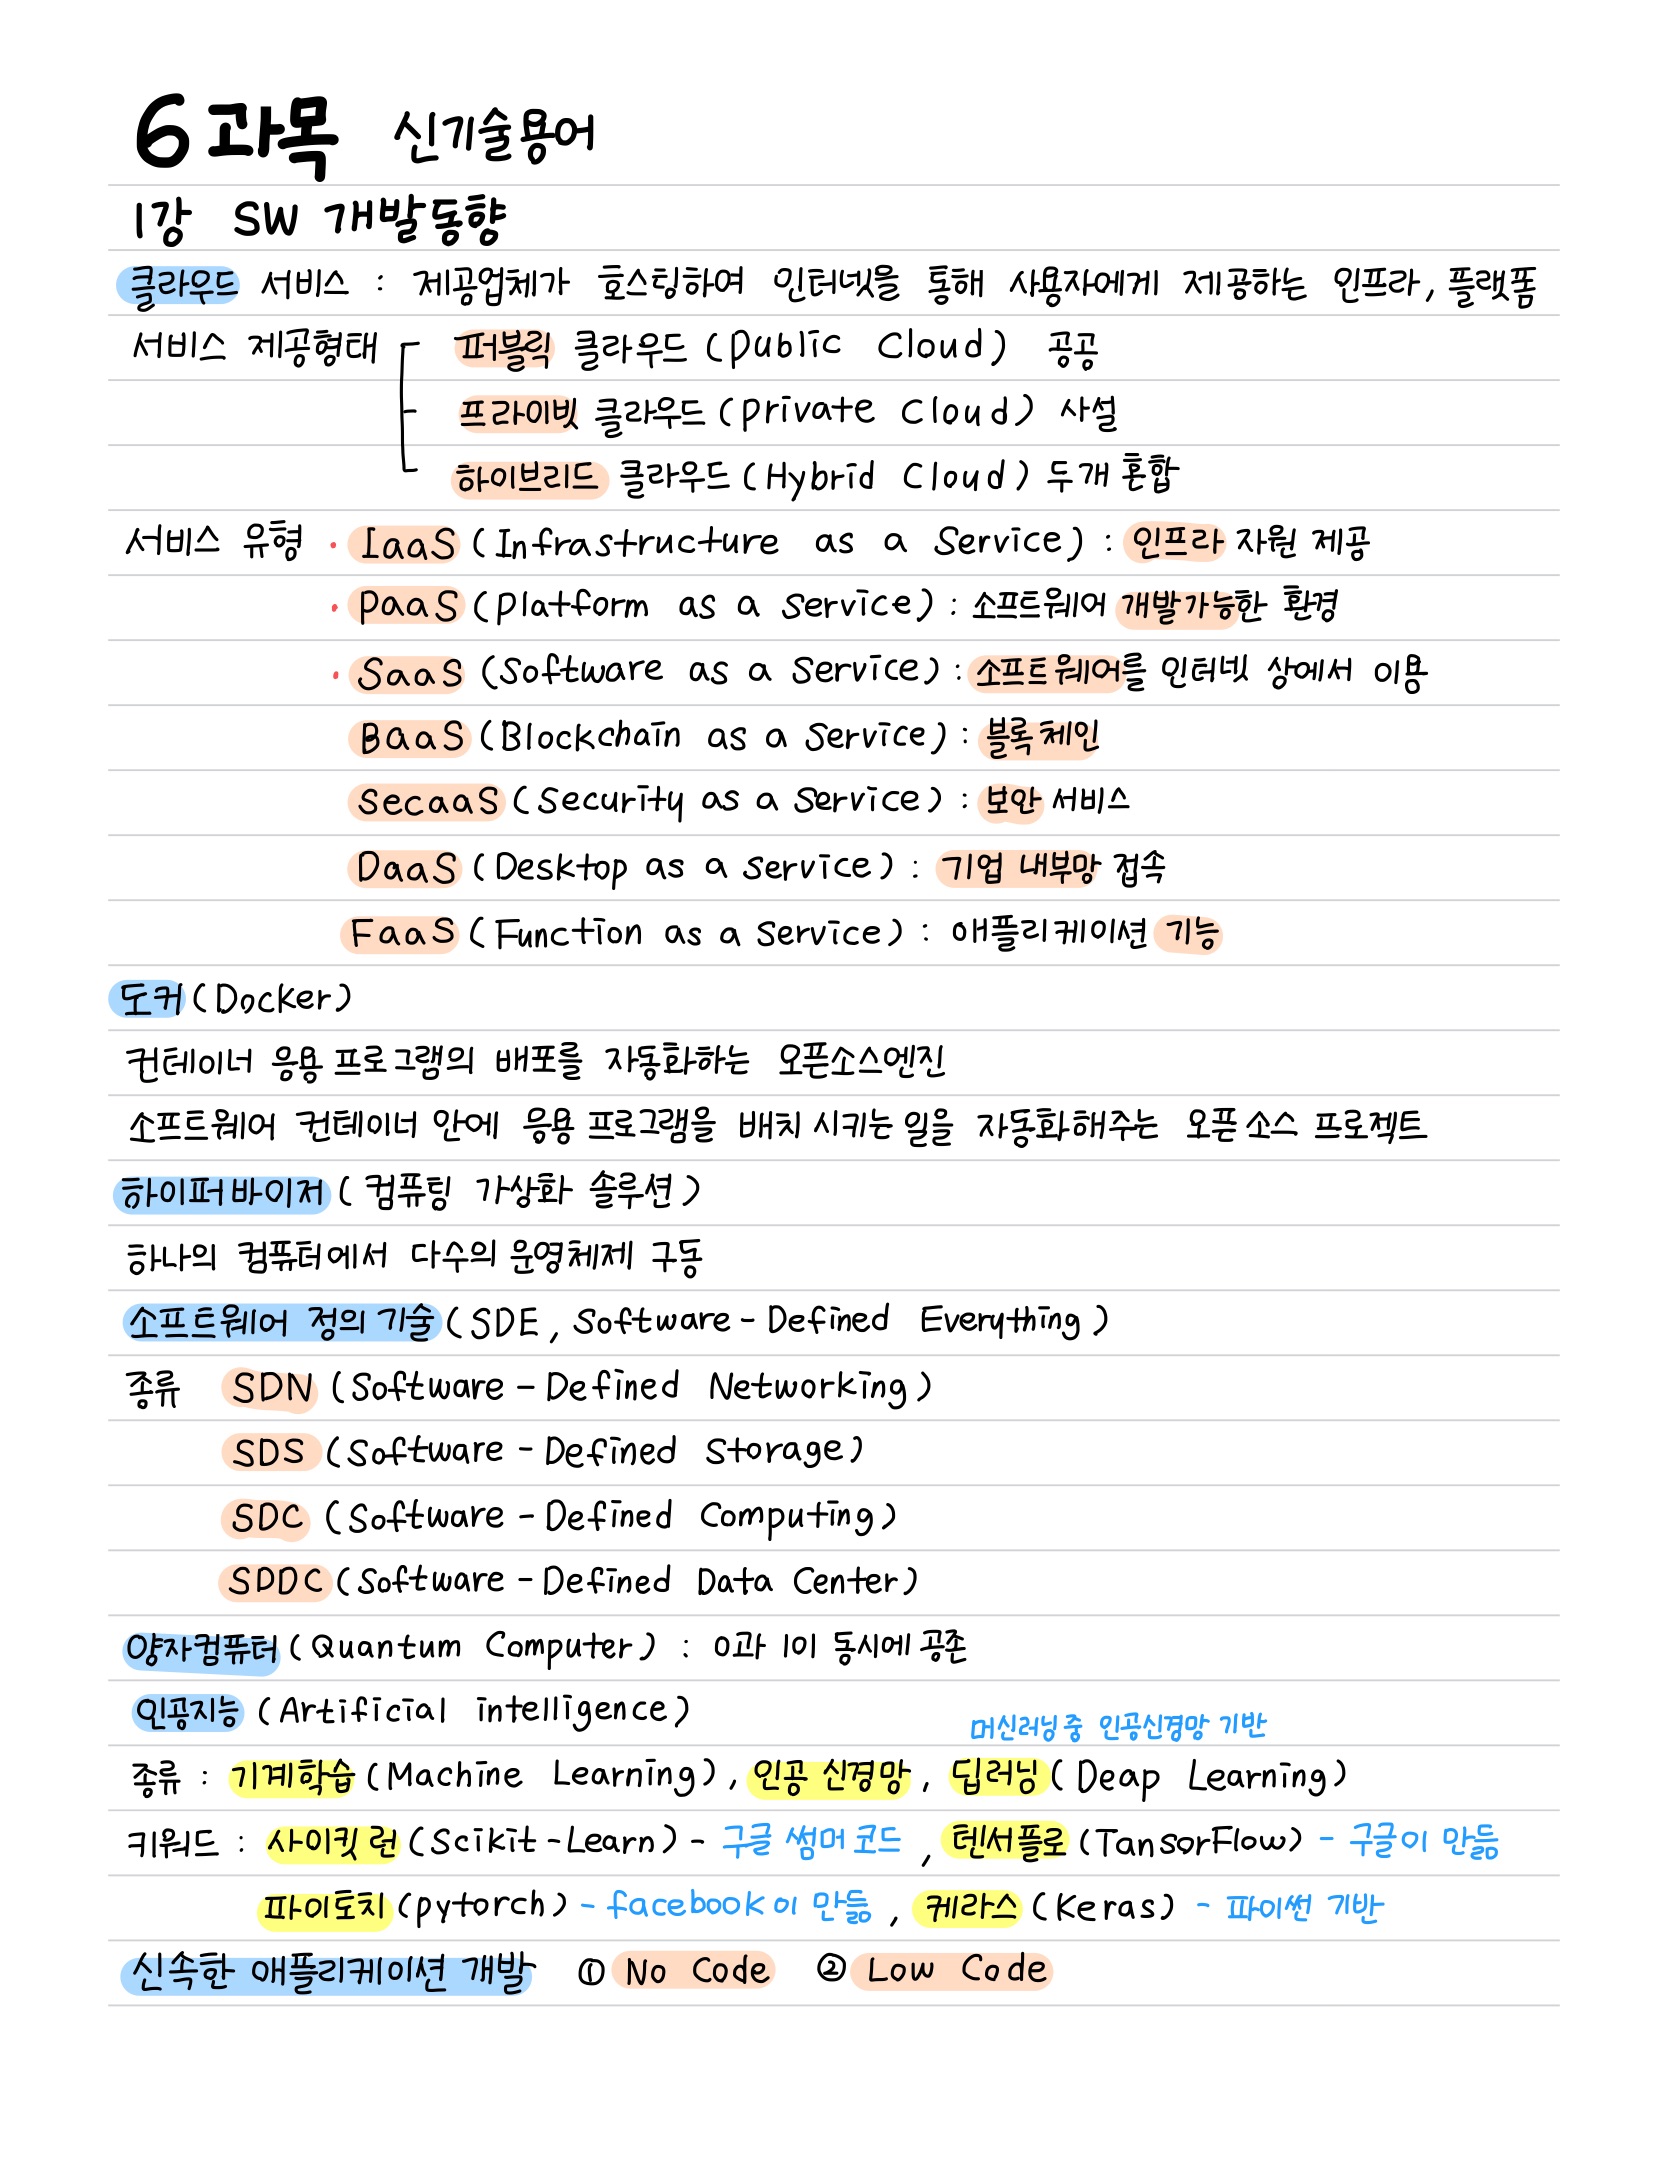 6과목 신기술용어
1강 SW 개발동향
클라우드 서비스 : 제공업체가 호스팅하여 인터넷을 통해 사용자에게 제공하는 인프라, 플랫폼
서비스 제공형태 퍼블릭 클라우드 (Public Cloud) 공공
프라이빗 클라우드 (Private Cloud) 사설
하이브리드 클라우드 (Hybrid Cloud) 두개 혼합
서비스 유형 · IaaS (Infrastructure as a Service) : 인프라 자원 제공
· PaaS (Platform as a Service) : 소프트웨어 개발가능한 환경
· SaaS (Software as a Service) : 소프트웨어를 인터넷 상에서 이용
BaaS (Blockchain as a Service) : 블록체인
SecaaS (Security as a Service) : 보안 서비스
DaaS (Desktop as a Service) : 기업 내부망 접속
FaaS (Function as a Service) : 애플리케이션 기능
도커 (Docker)
컨테이너 응용 프로그램의 배포를 자동화하는 오픈소스엔진
소프트웨어 컨테이너 안에 응용 프로그램을 배치 시키는 일을 자동화해주는 오픈 소스 프로젝트
하이퍼바이저 ( 컴퓨팅 가상화 솔루션 )
하나의 컴퓨터에서 다수의 운영체제 구동
소프트웨어 정의 기술 (SDE, Software - Defined Everything )
종류 SDN (Software - Defined Networking )
SDS (Software - Defined Storage)
SDC (Software - Defined Computing )
SDDC (Software - Defined Data Center)
양자컴퓨터 (Quantum Computer) : 0과 1이 동시에 공존
인공지능 (Artificial intelligence)
머신러닝 중 인공신경망 기반
종류 : 기계학습 (Machine Learning), 인공 신경망, 딥러닝 (Deap Learning)
키워드 : 사이킷 런 (Scikit-Learn) - 구글 썸머 코드 , 텐서플로 (TansorFlow) - 구글이 만듦
파이토치 (pytorch) - facebook이 만듦 , 케라스 (Keras) - 파이썬 기반
신속한 애플리케이션 개발 ① No Code ② Low Code